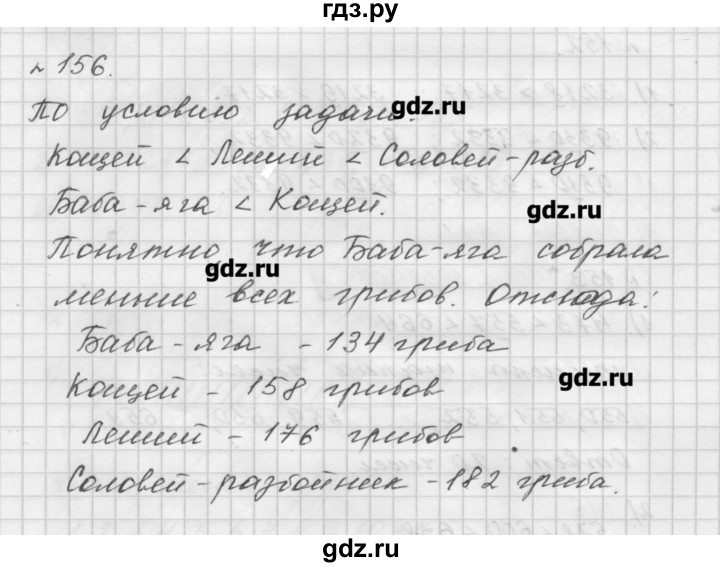 гдз.ру
№ 156.
По условию задачи:
Кощей < Леший < Соловей-разб.
Баба-яга < Кощей.
Понятно, что Баба-яга собрала
меньше всех грибов. Отсюда:
Баба-яга - 134 гриба
Кощей - 158 грибов
Леший - 176 грибов
Соловей-разбойник - 182 гриба.
gdz.ru
gdz.ru
gdz.ru
gdz.ru
gdz.ru